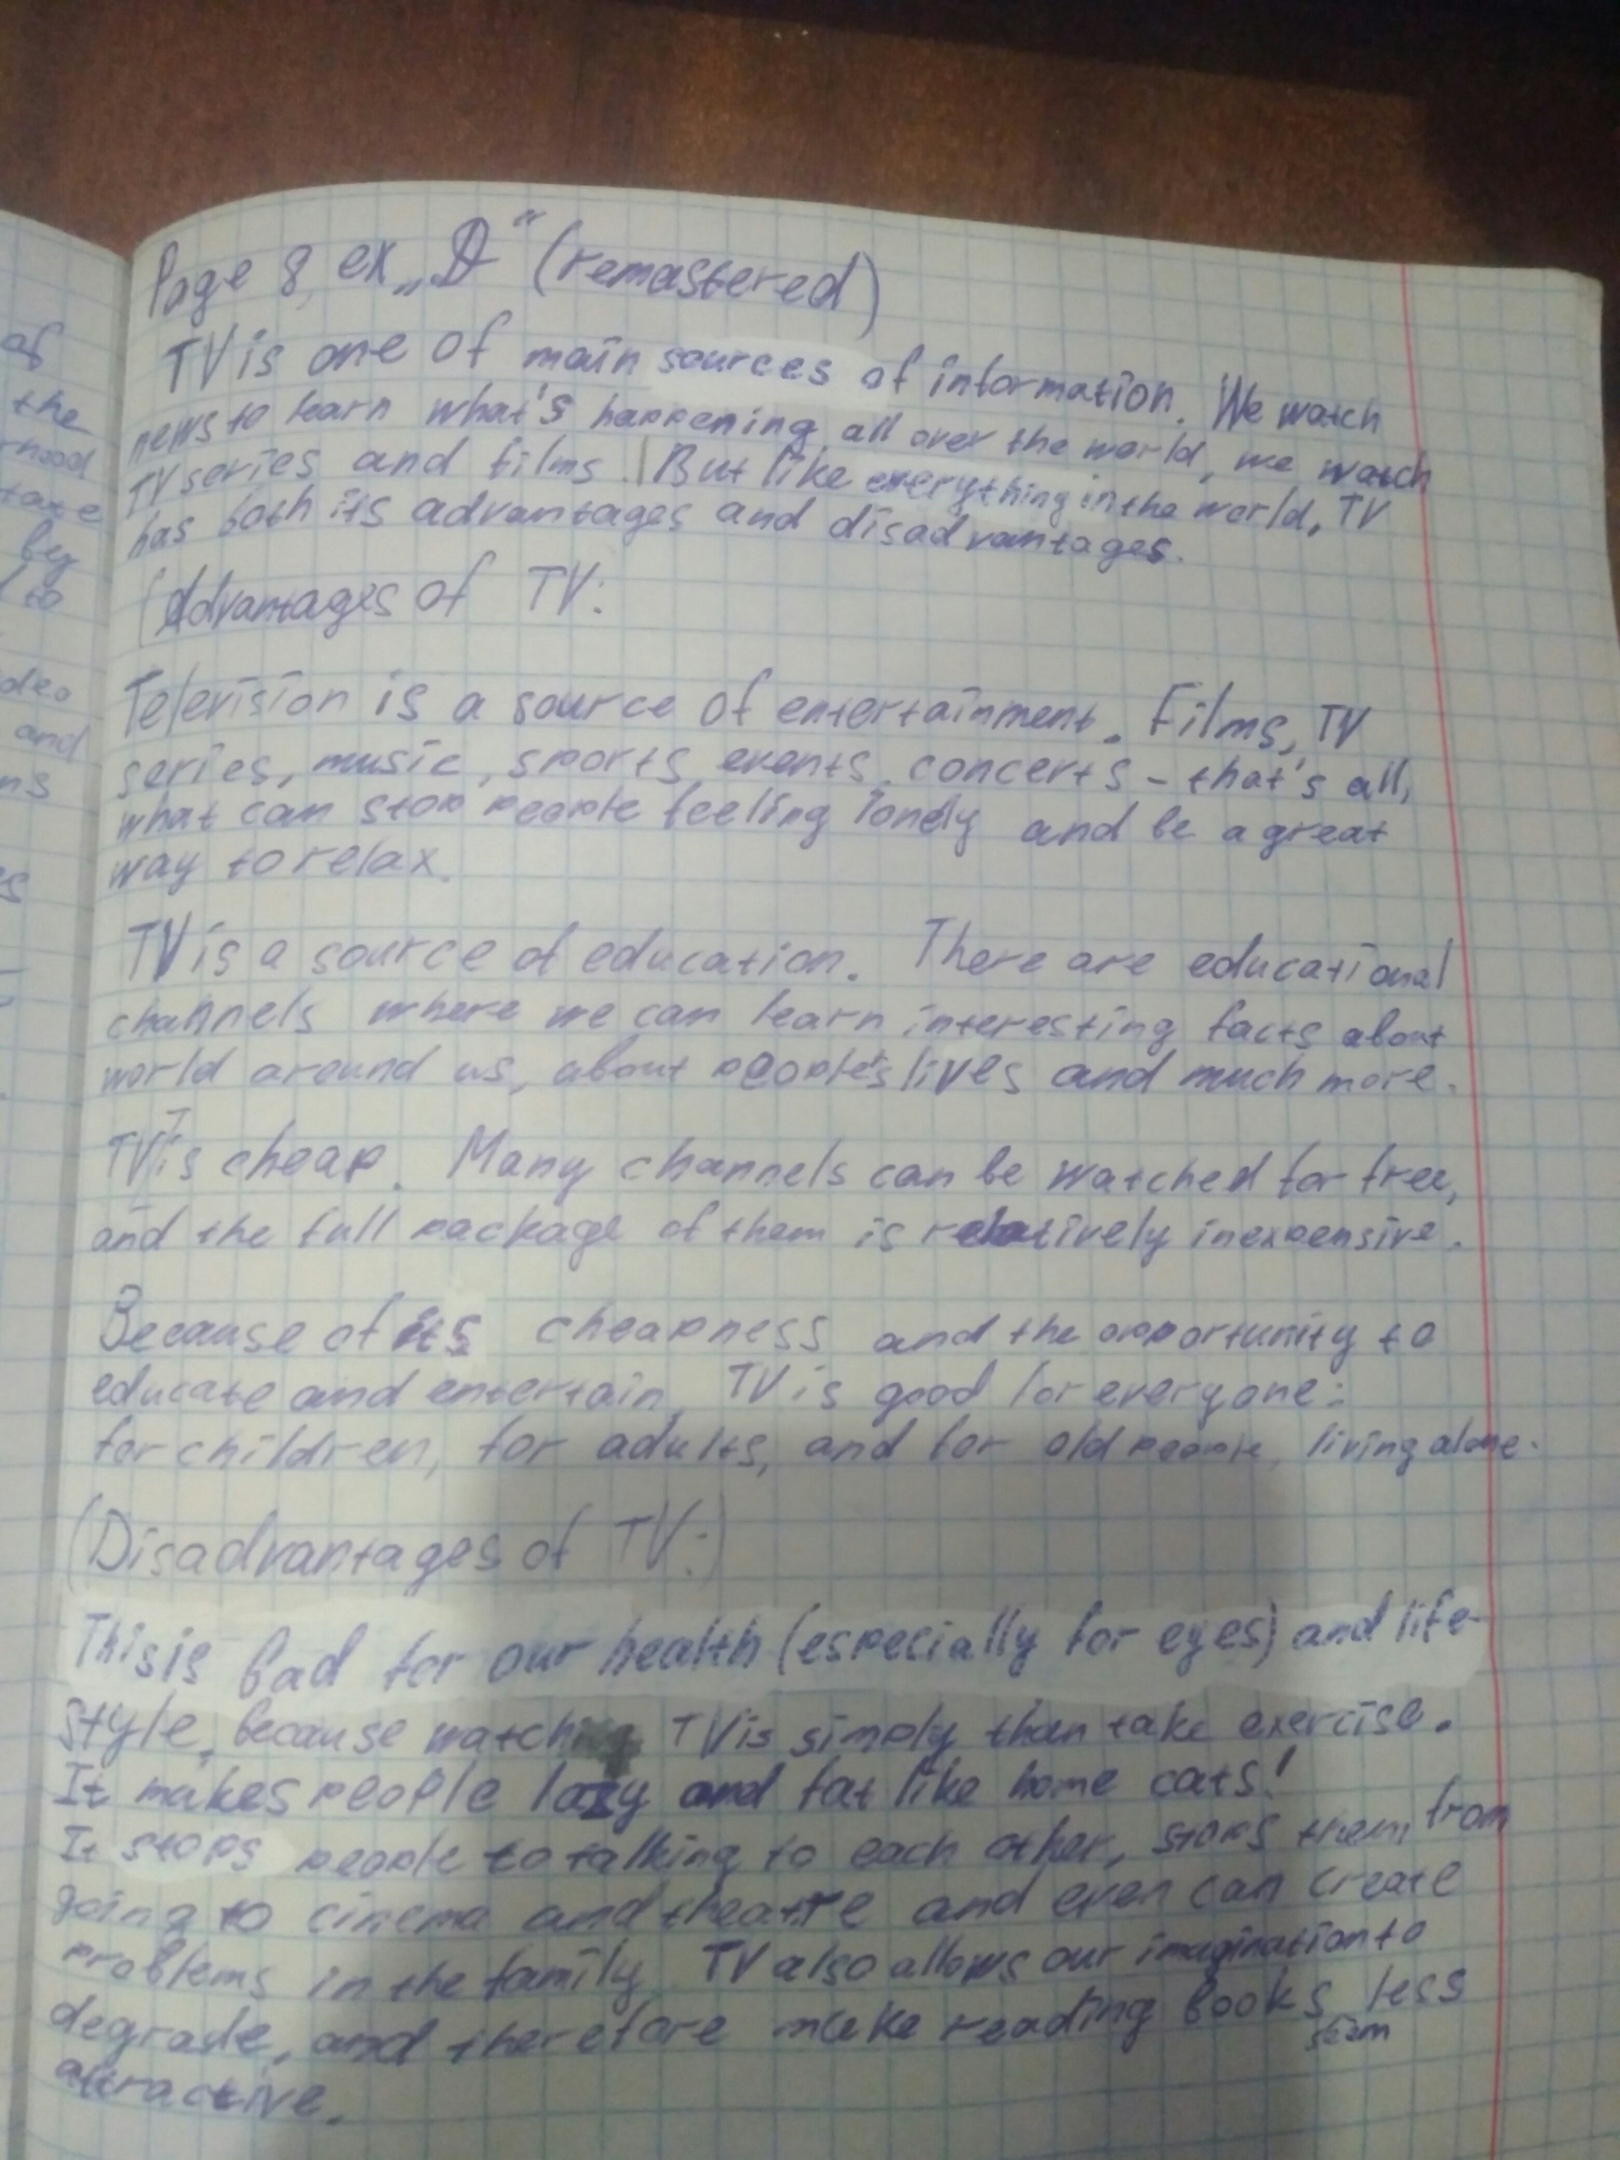 Page 8, ex „D“ (remastered)
TV is one of main sources of information. We watch
news to learn what's happening all over the world, we watch
TV series and films. But like everything in the world, TV
has both its advantages and disadvantages.
(Advantages of TV:
Television is a source of entertainment. Films, TV
series, music, sports, events, concerts - that's all,
what can stop people feeling lonely and be a great
way to relax.
TV is a source of education. There are educational
channels where we can learn interesting facts about
world around us, about people's lives and much more.
TV is cheap. Many channels can be watched for free,
and the full package of them is relatively inexpensive.
Because of its cheapness and the opportunity to
educate and entertain, TV is good for everyone:
for children, for adults, and for old people, living alone.
(Disadvantages of TV:)
This is bad for our health (especially for eyes) and life-
style, because watching TV is simply than take exercise.
It makes people lazy and fat like home cats!
It stops people to talking to each other, stops them from
going to cinema and theatre and even can create
problems in the family. TV also allows our imagination to
degrade, and therefore make reading books less
seem
attractive.
of
the
hood
take
by
to
deo
and
ns